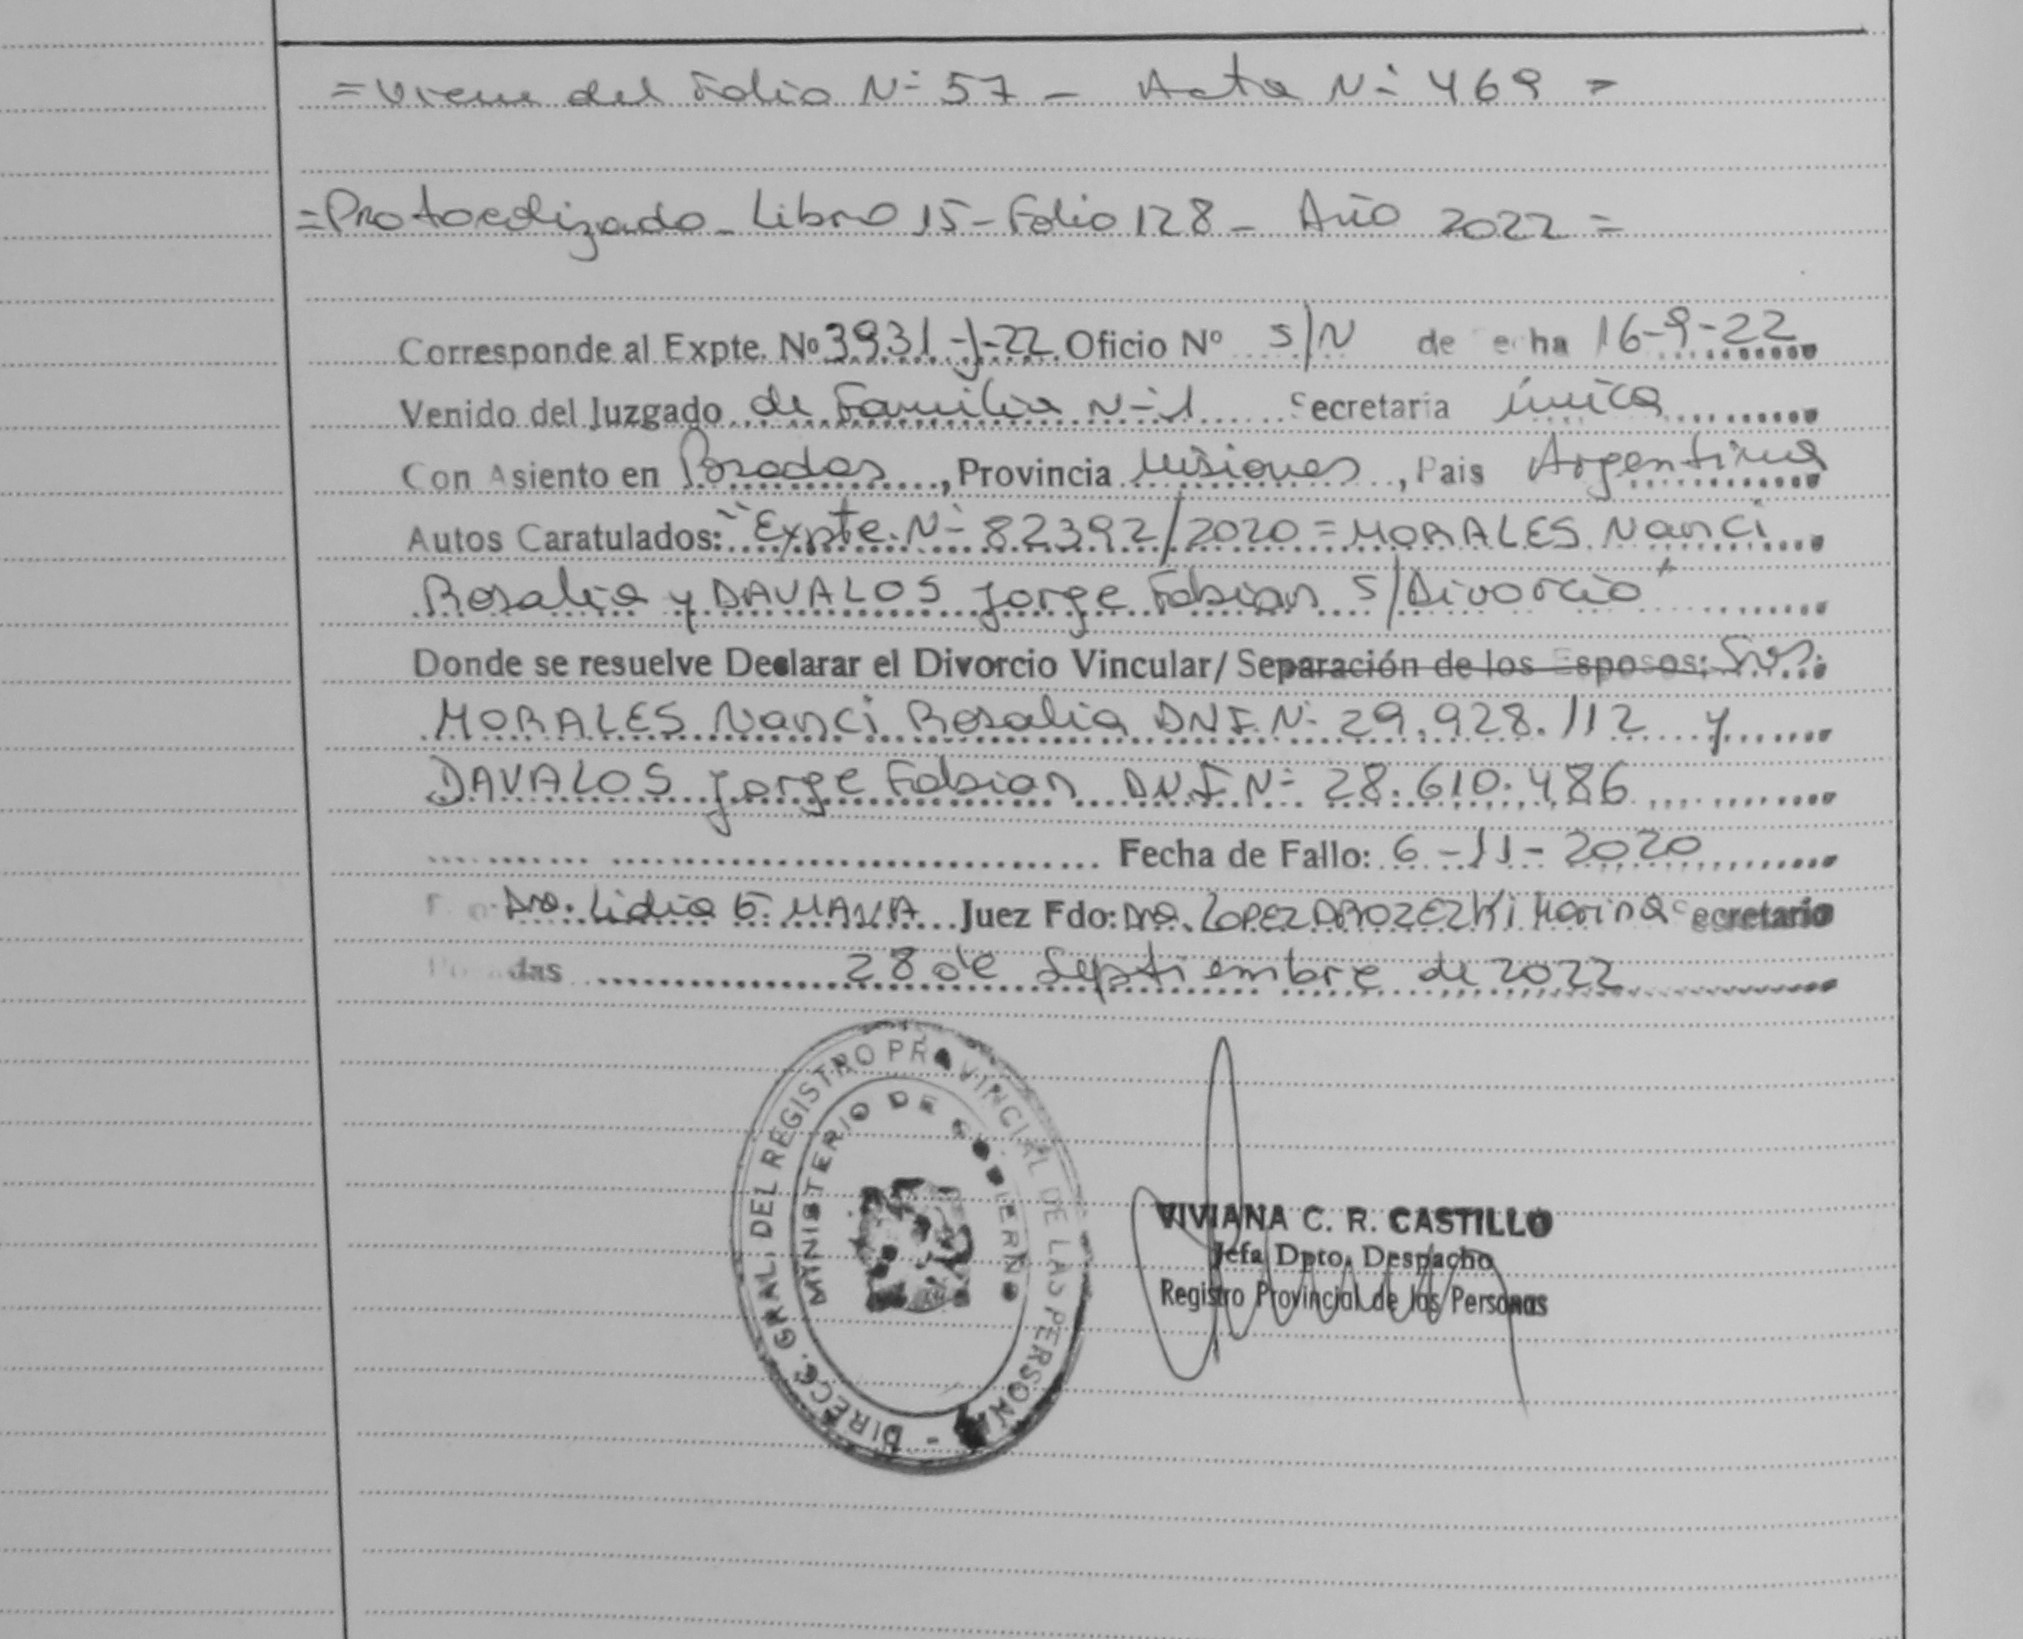 = Viene del Folio Nº 57 - Acta Nº 469 =
= Protocolizado - Libro 15 - Folio 128 - Año 2022 =
Corresponde al Expte. Nº 3931-J-22 Oficio Nº S/N de Fecha 16-9-22
Venido del Juzgado de Familia Nº 1 Secretaria única
Con Asiento en Posadas, Provincia Misiones, Pais Argentina
Autos Caratulados: "Expte. Nº 82392/2020 = MORALES Nanci
Rosalia y DAVALOS Jorge Fabian S/Divorcio"
Donde se resuelve Declarar el Divorcio Vincular/ Separación de los Esposos: Sres.
MORALES Nanci Rosalia DNI Nº 29.928.112 y
DAVALOS Jorge Fabian DNI Nº 28.610.486
Fecha de Fallo: 6-11-2020
Dra. Lidia E. Juez Fdo: Dra. LOPEZ Marina Secretario
Posadas 28 de Septiembre de 2022
DIRECC. GRAL. DEL REGISTRO PROVINCIAL DE LAS PERSONAS -
MINISTERIO DE GOBIERNO
VIVIANA C. R. CASTILLO
Jefa Dpto. Despacho
Registro Provincial de las Personas